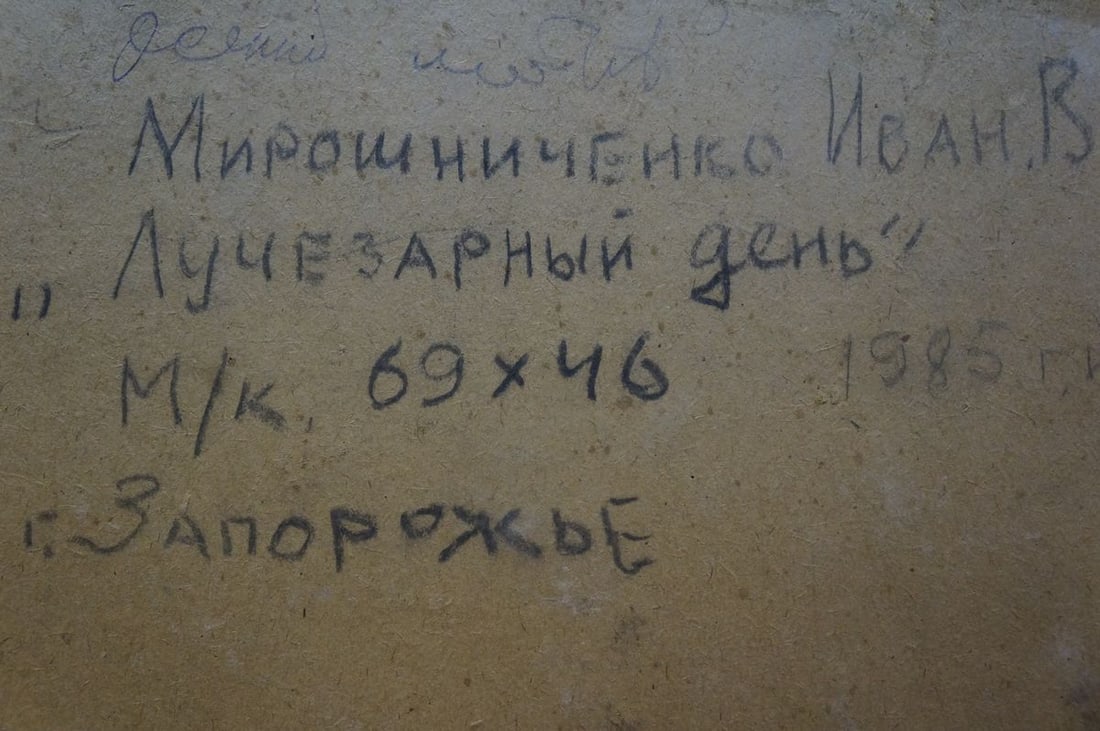 Мирошниченко Иван. В
„Лучезарный день"
М/к. 69x46 1985 г.
г. Запорожье